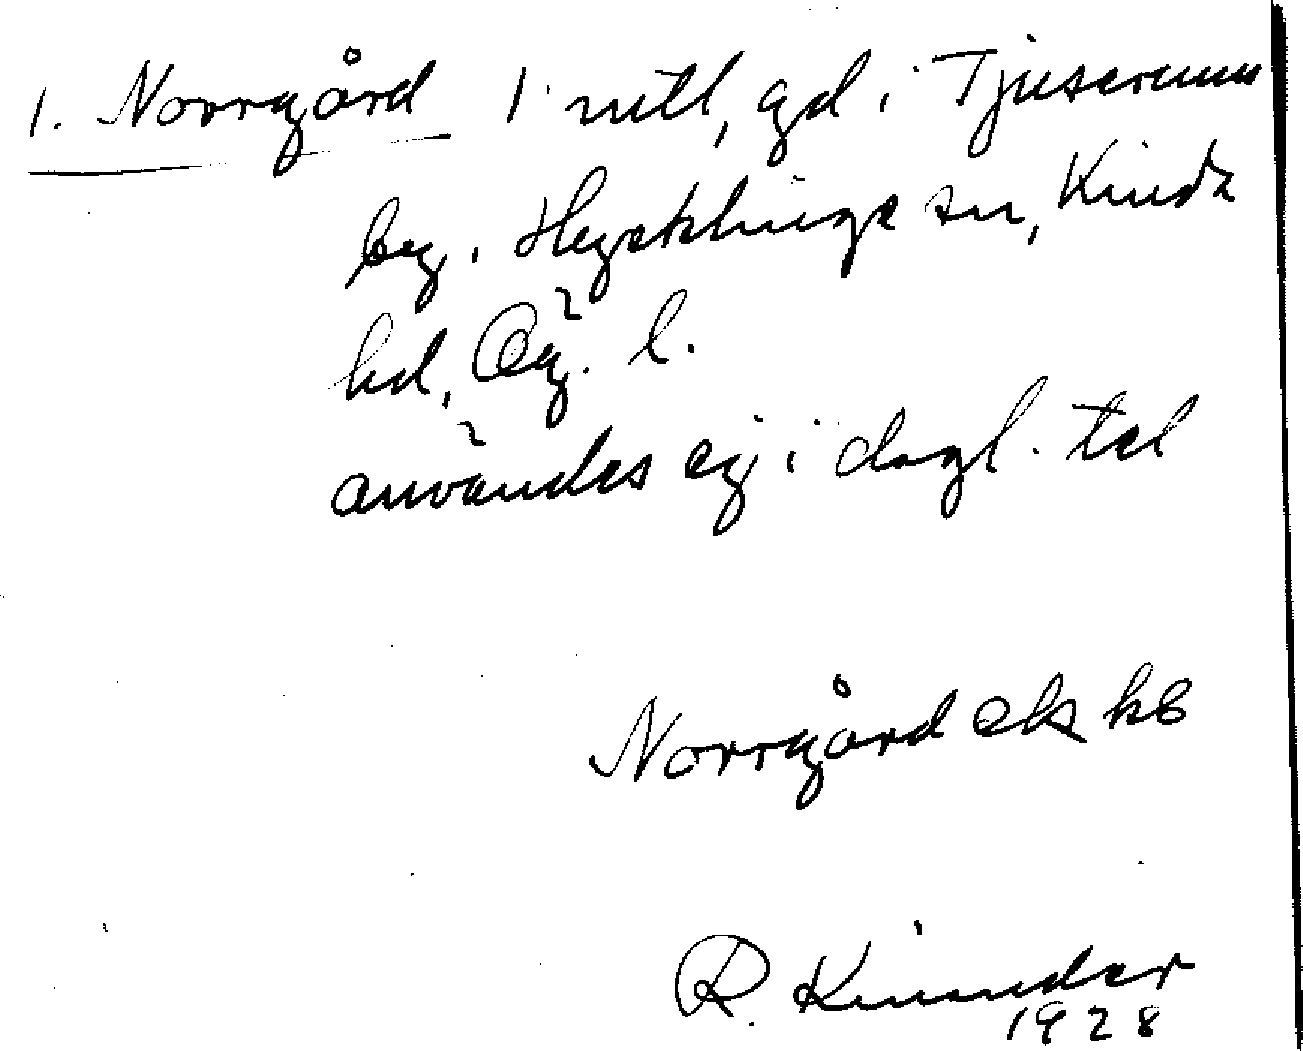 1. Norrgård 1 mtl, gd i Tjuserum
by, Hycklinge sn, Kinda
hd, Ög. l.
användes ej i dagl. tal
Norrgård ek kb
R. Kinander
1928